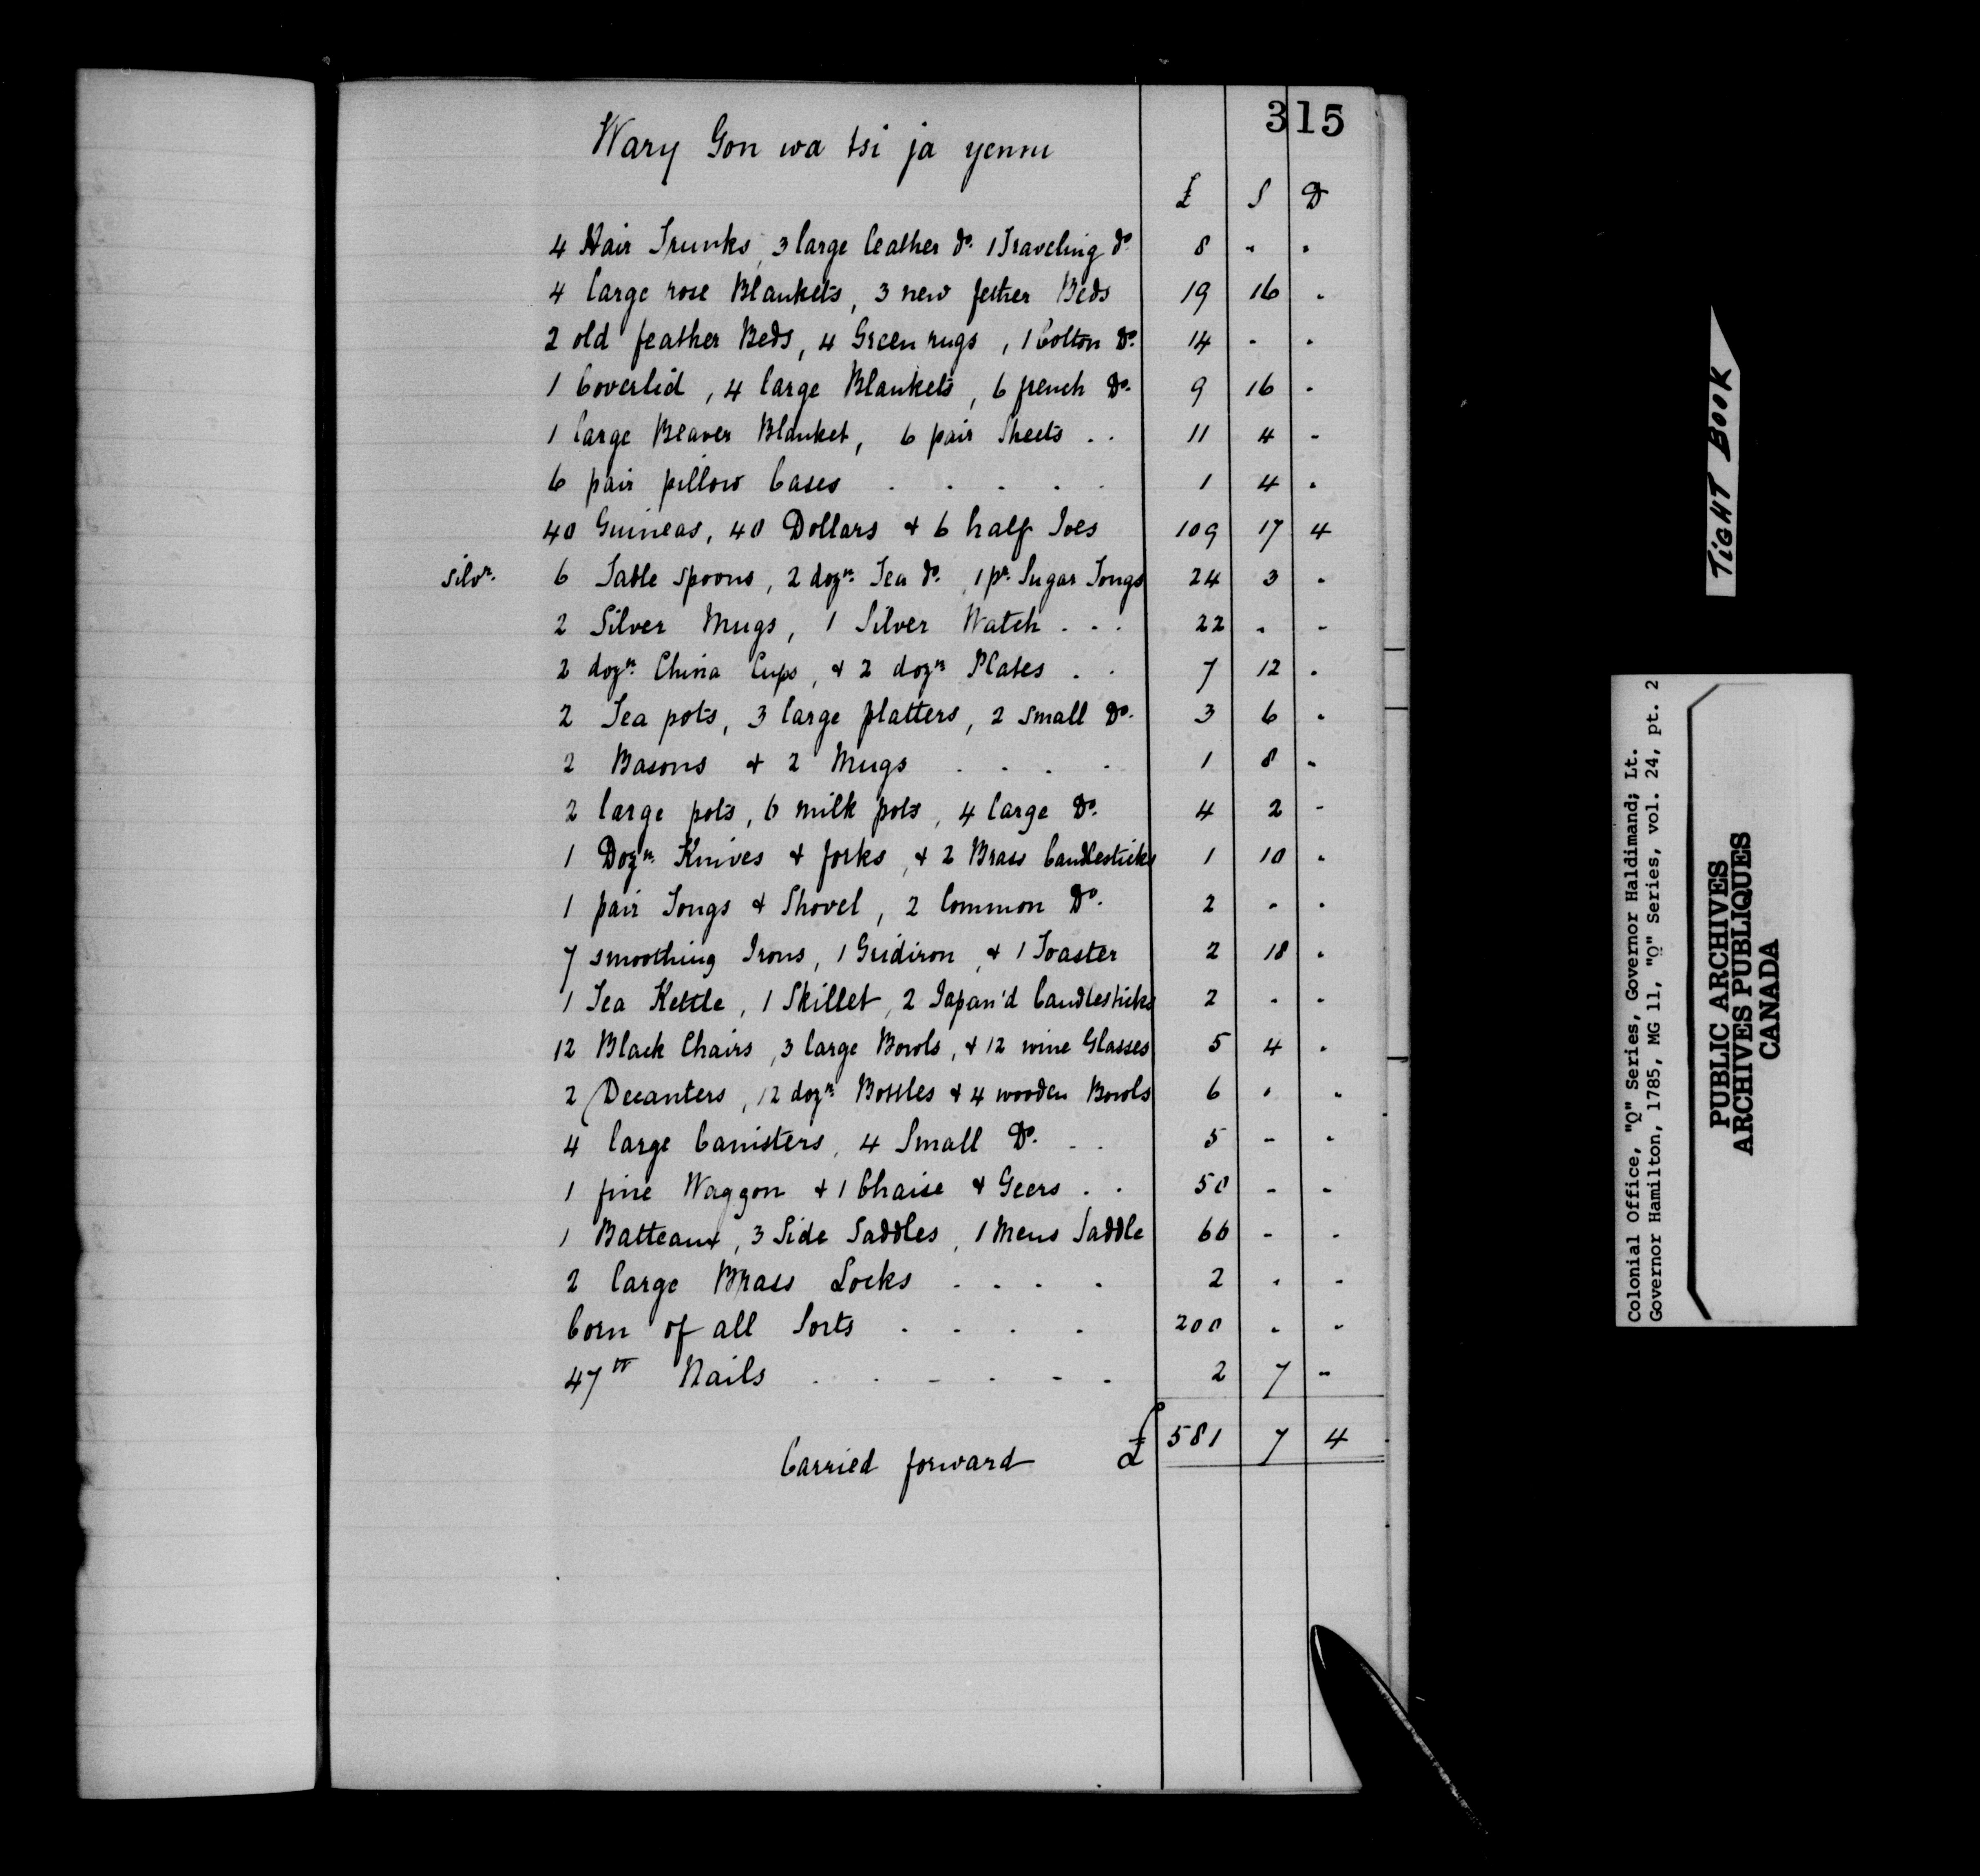 315
Wary Gon wa tsi ja yenni
£ S D
4 Hair Trunks, 3 large leather Do. 1 Traveling Do. 8 - -
4 large rose Blankets, 3 new fether Beds 19 16 -
2 old feather Beds, 4 Green rugs, 1 Cotton Do. 14 - -
1 Coverlid, 4 large Blankets, 6 french Do. 9 16 -
1 large Beaver Blanket, 6 pair Sheets . . 11 4 -
6 pair pillow Cases . . . . . 1 4 -
40 Guineas, 40 Dollars & 6 half Joes 109 17 4
Silvr. 6 Table Spoons, 2 dozn. Tea Do., 1 pr. Sugar Tongs 24 3 -
2 Silver Mugs, 1 Silver Watch . . . 22 - -
2 dozn. China Cups, & 2 dozn Plates . . 7 12 -
2 Tea pots, 3 large platters, 2 small Do. 3 6 -
2 Basons & 2 Mugs . . . . 1 8 -
2 large pots, 6 milk pots, 4 large Do. 4 2 -
1 Dozn. Knives & forks, & 2 Brass Candlesticks 1 10 -
1 pair Tongs & Shovel, 2 Common Do. 2 - -
7 smoothing Irons, 1 Gridiron, & 1 Toaster 2 18 -
1 Tea Kettle, 1 Skillet, 2 Japan'd Candlesticks 2 - -
12 Black Chairs, 3 large Bowls, & 12 wine Glasses 5 4 -
2 Decanters, 12 dozn. Bottles & 4 wooden Bowls 6 - -
4 large Canisters, 4 Small Do. - . 5 - -
1 fine Waggon & 1 Chaise & Geers . . 50 - -
1 Batteaux, 3 Side Saddles, 1 Mens Saddle 66 - -
2 large Brass Locks . . . . 2 - -
Corn of all Sorts . . . . 200 - -
47 lb Nails . . . . . . 2 7 -
Carried forward £ 581 7 4
TIGHT BOOK
Colonial Office, "Q" Series, Governor Haldimand; Lt.
Governor Hamilton, 1785, MG 11, "Q" Series, vol. 24, pt. 2
PUBLIC ARCHIVES
ARCHIVES PUBLIQUES
CANADA